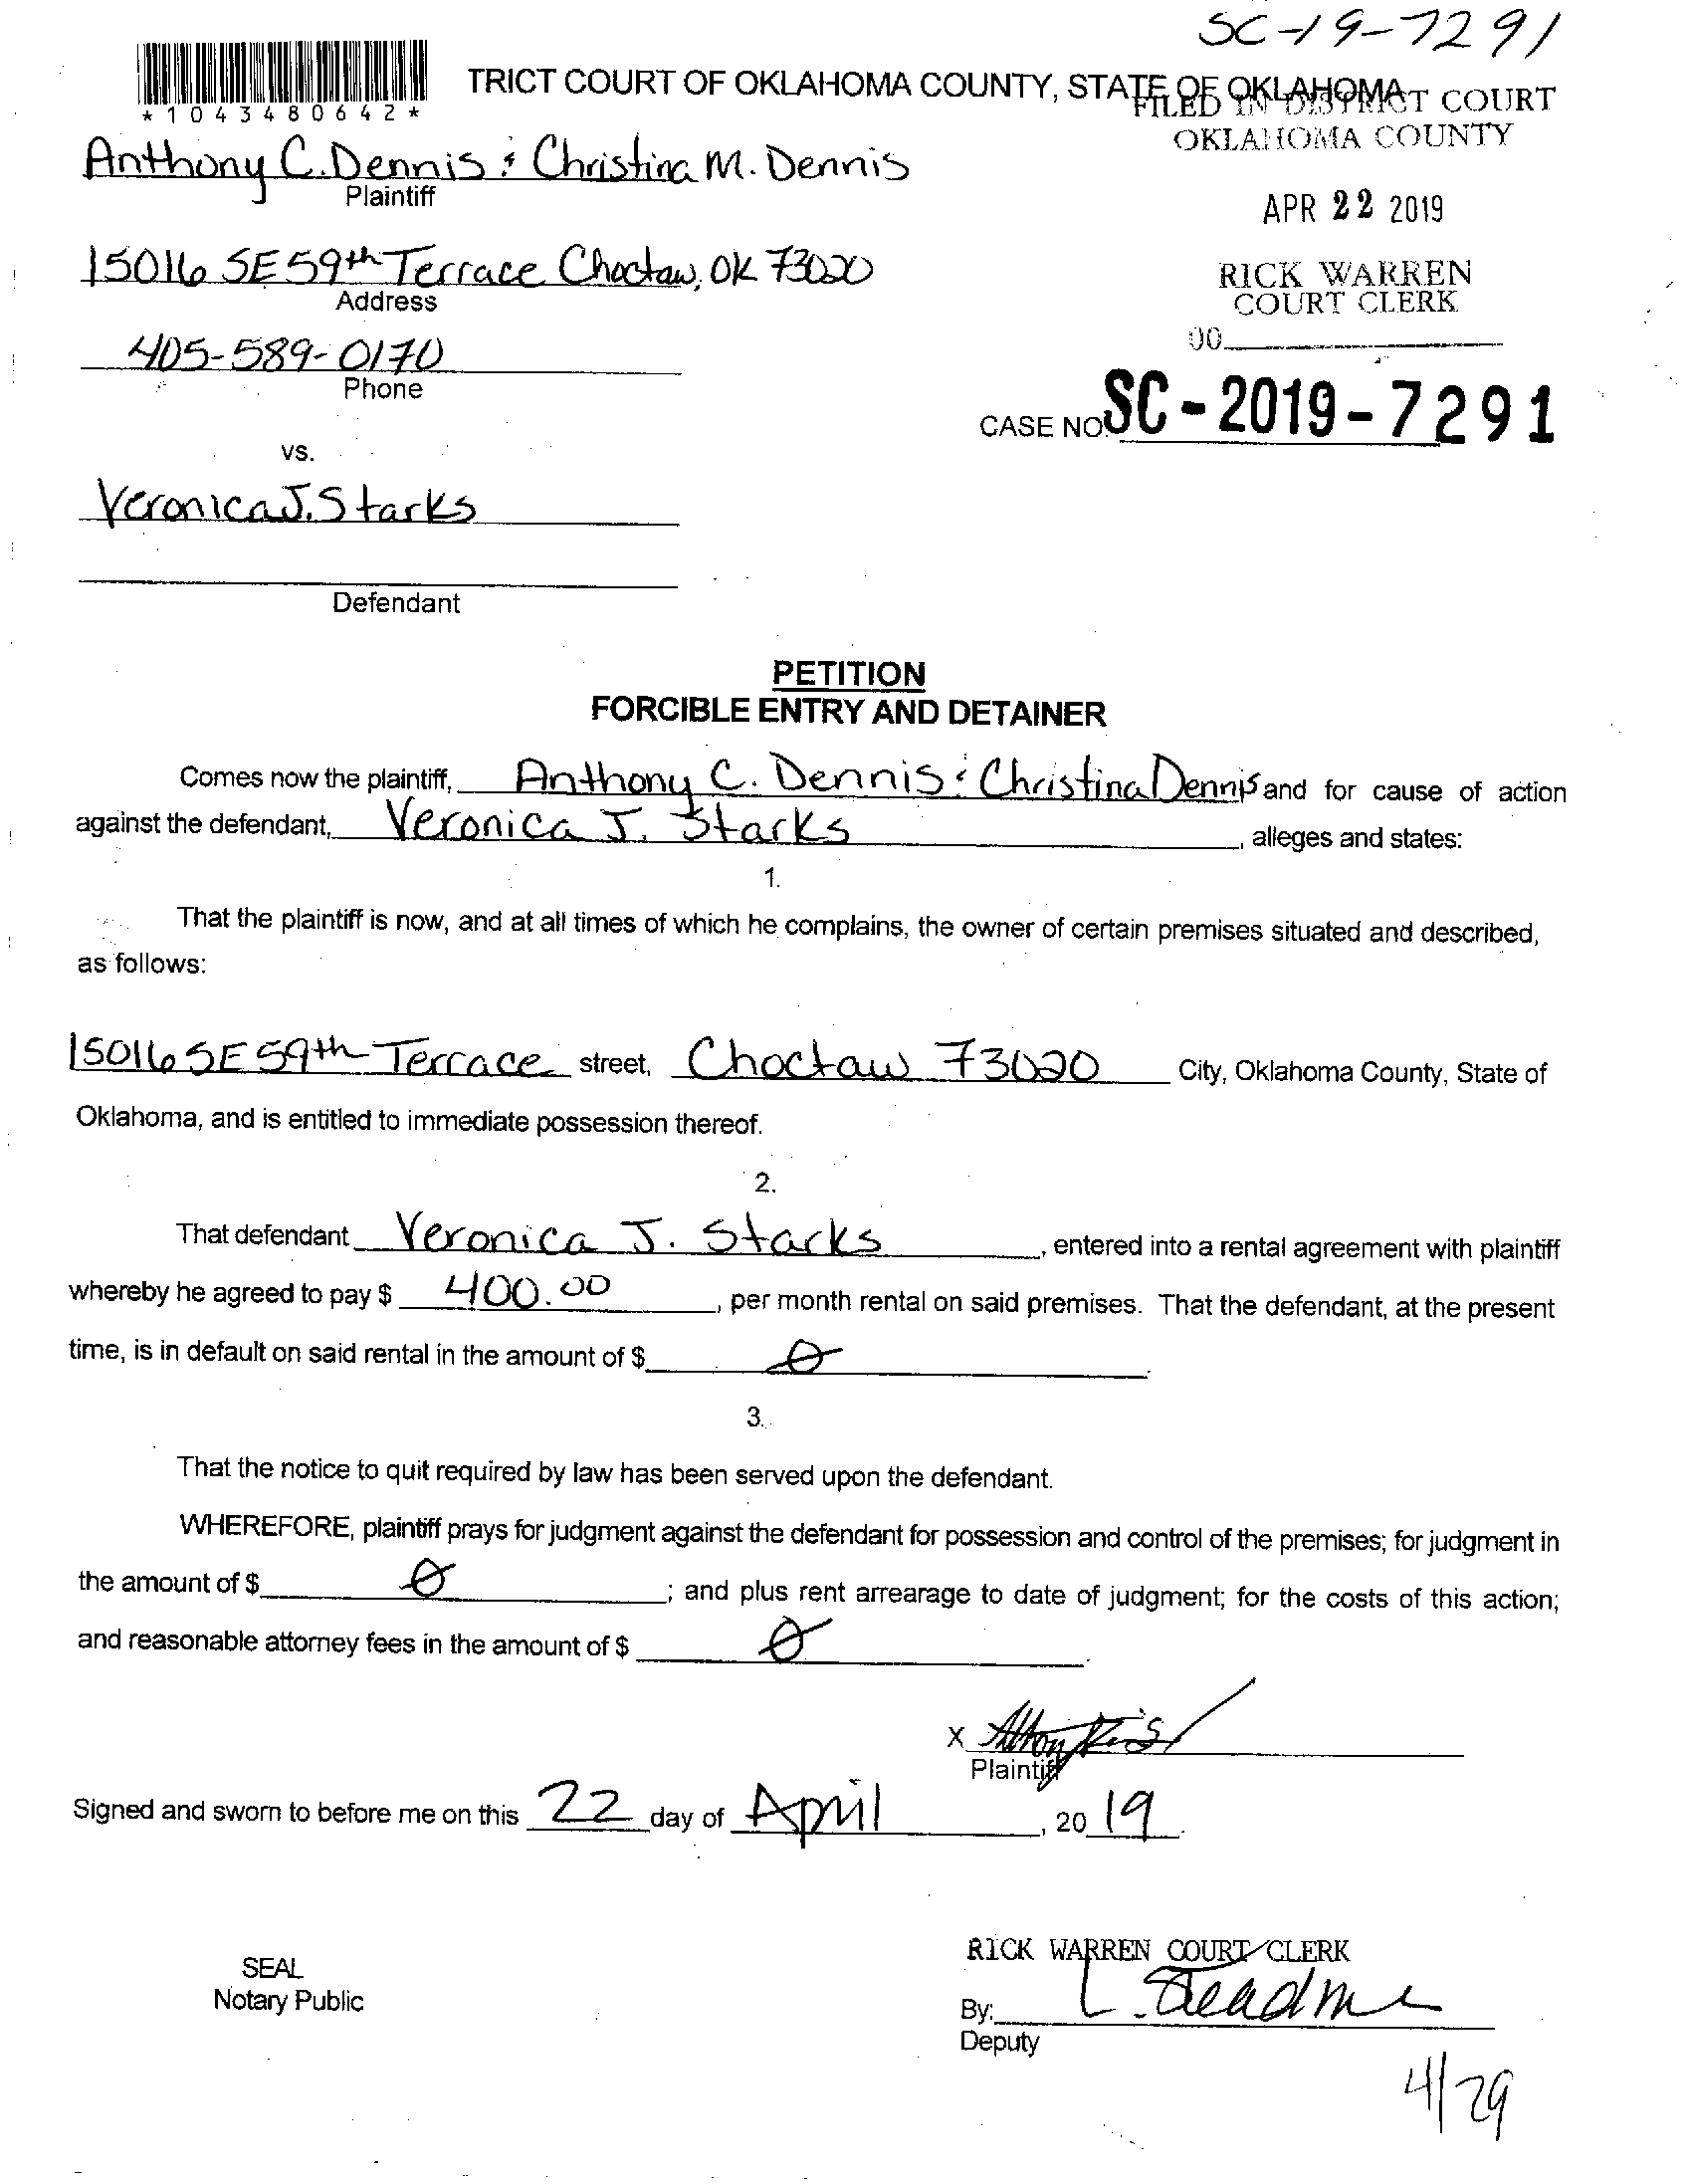 SC-19-7291
TRICT COURT OF OKLAHOMA COUNTY, STATE OF OKLAHOMA
*1043480642*
FILED IN DISTRICT COURT
OKLAHOMA COUNTY
Anthony C. Dennis & Christina M. Dennis
Plaintiff
APR 22 2019
15016 SE 59th Terrace Choctaw, OK 73020
Address
RICK WARREN
COURT CLERK
405-589-0170
Phone
CASE NO. SC-2019-7291
vs.
Veronica J. Starks
Defendant
PETITION
FORCIBLE ENTRY AND DETAINER
Comes now the plaintiff, Anthony C. Dennis & Christina Dennis and for cause of action
against the defendant, Veronica J. Starks, alleges and states:
1.
That the plaintiff is now, and at all times of which he complains, the owner of certain premises situated and described,
as follows:
15016 SE 59th Terrace street, Choctaw 73020 City, Oklahoma County, State of
Oklahoma, and is entitled to immediate possession thereof.
2.
That defendant Veronica J. Starks, entered into a rental agreement with plaintiff
whereby he agreed to pay $ 400.00, per month rental on said premises. That the defendant, at the present
time, is in default on said rental in the amount of $ 0.
3.
That the notice to quit required by law has been served upon the defendant.
WHEREFORE, plaintiff prays for judgment against the defendant for possession and control of the premises; for judgment in
the amount of $ 0; and plus rent arrearage to date of judgment; for the costs of this action;
and reasonable attorney fees in the amount of $ 0.
X
Plaintiff
Signed and sworn to before me on this 22 day of April, 20 19.
SEAL
Notary Public
RICK WARREN COURT CLERK
By:
Deputy
4/29